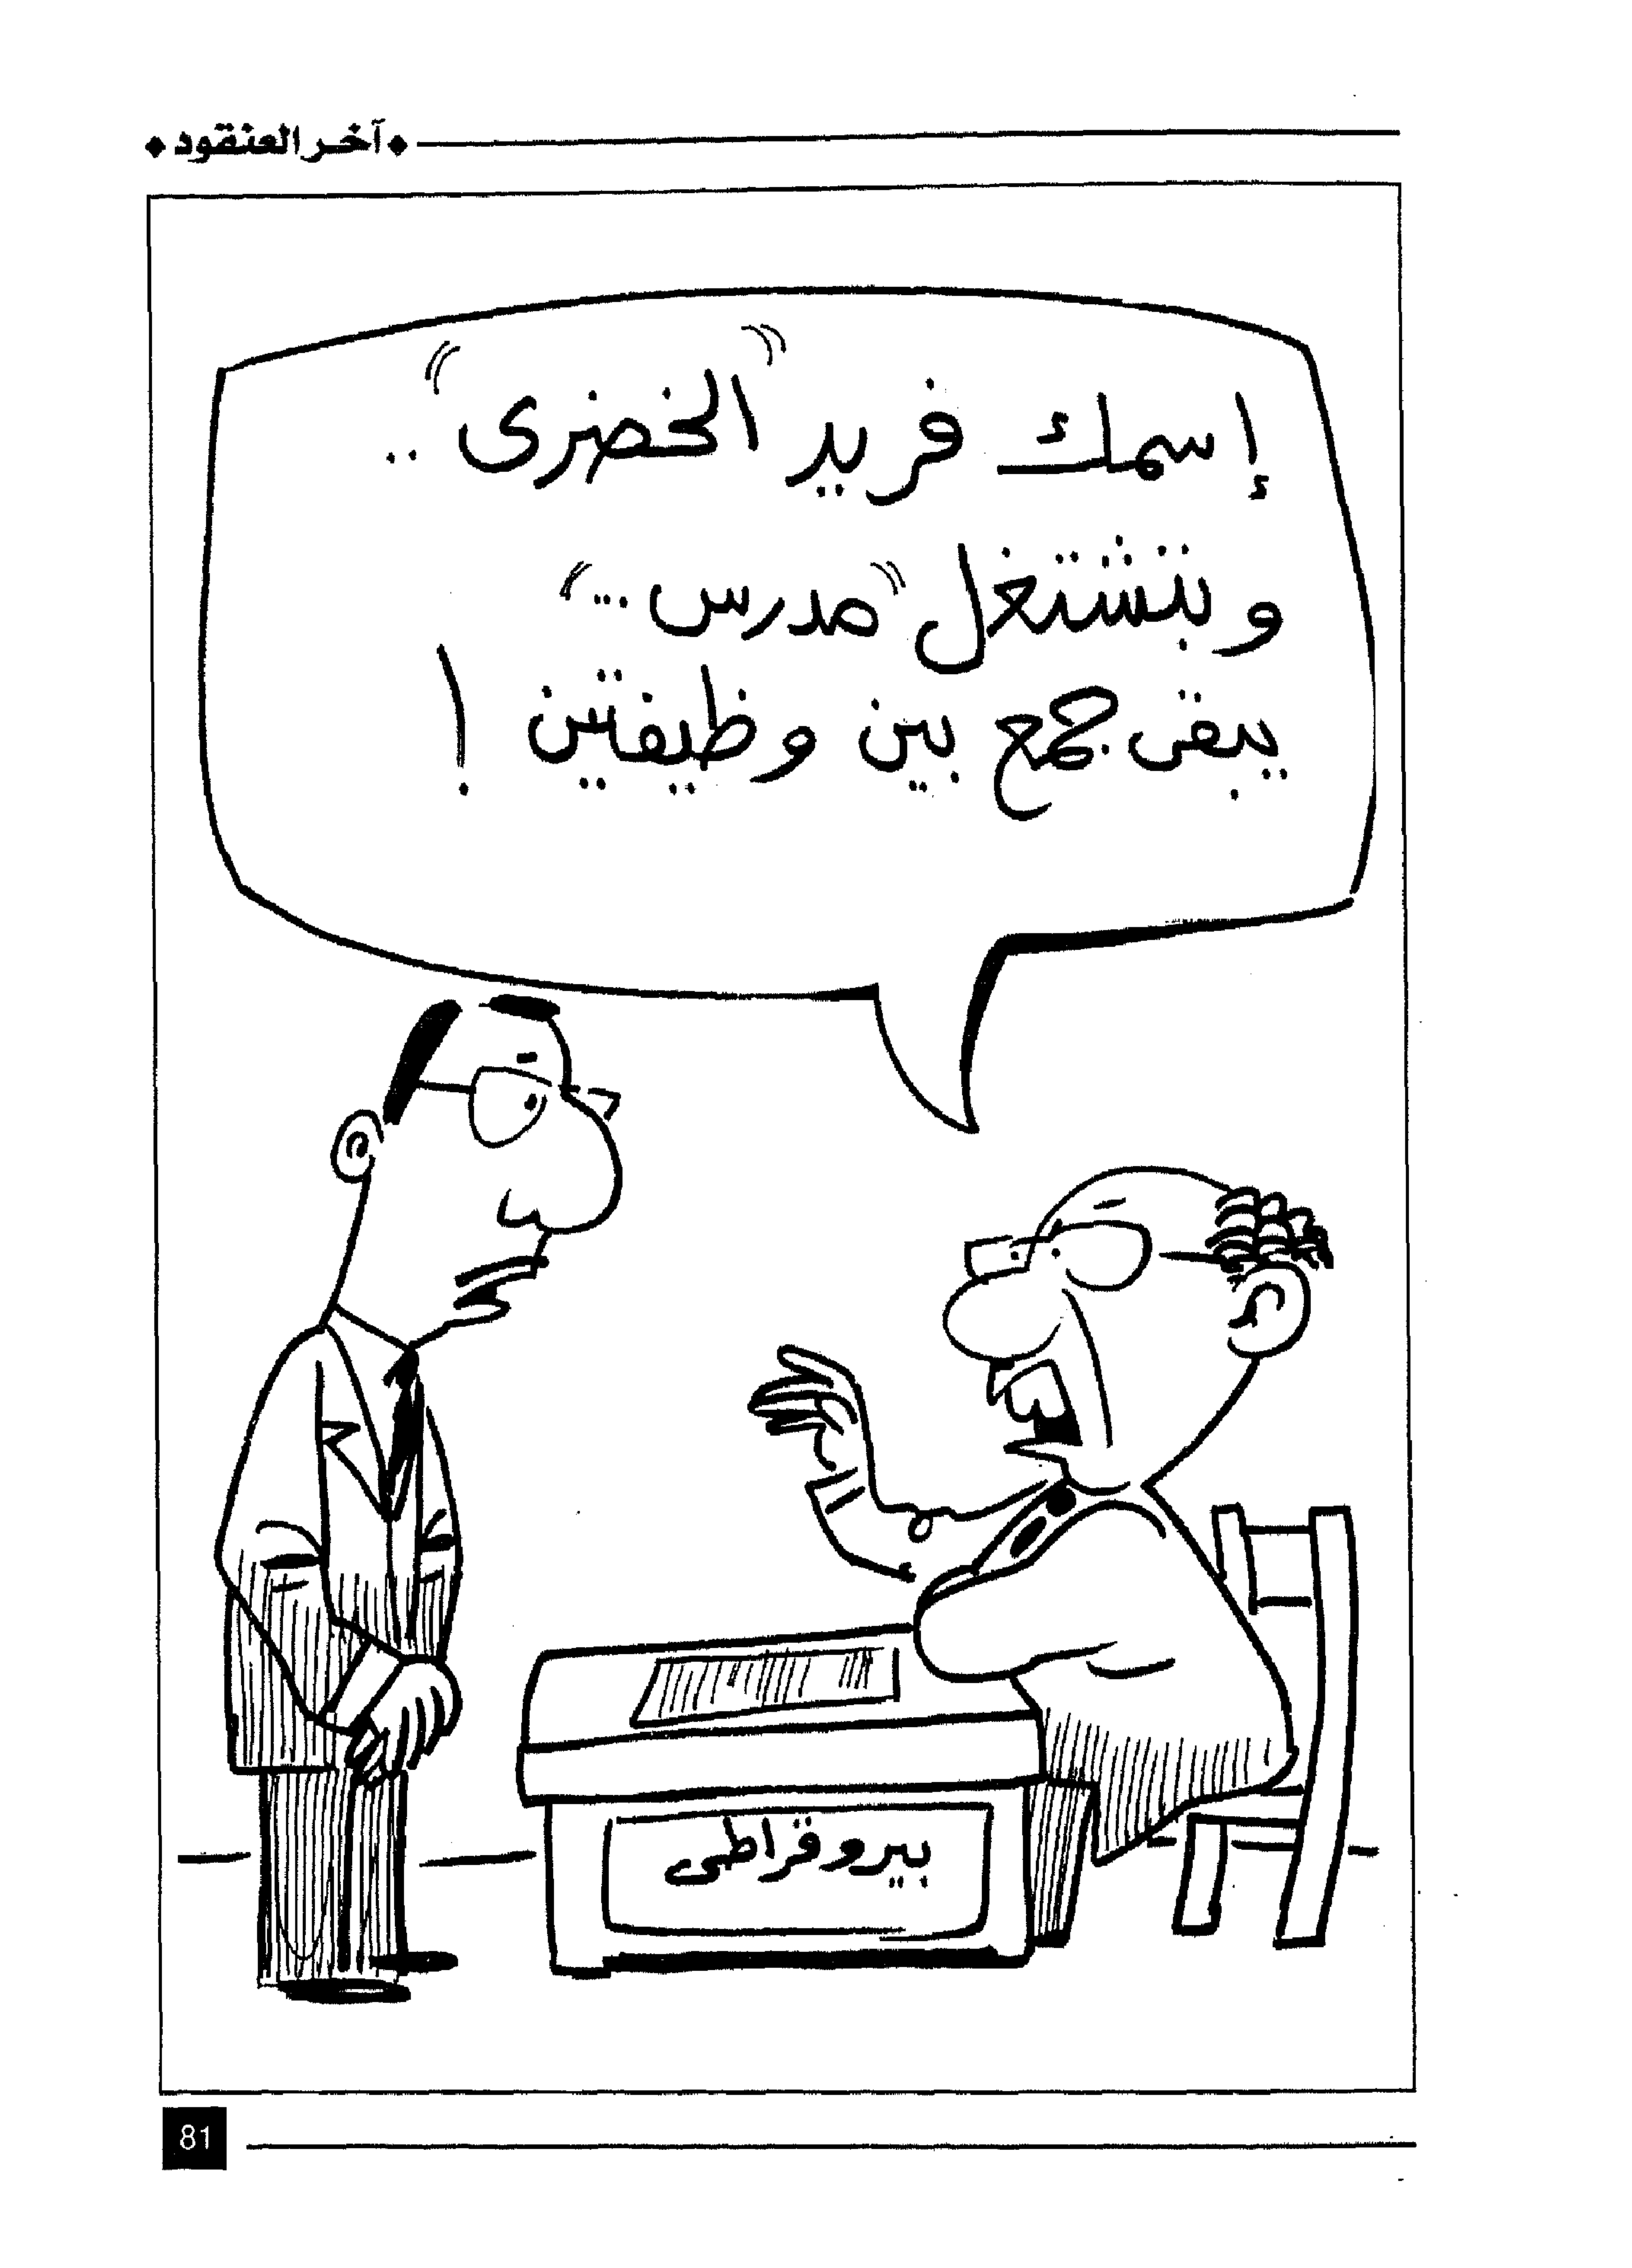 آخر العنقود
إسمك فريد "الخضرى" ..
و بتشتغل "مدرس ..."
يبقى جمع بين وظيفتين !
بيروقراطى
81